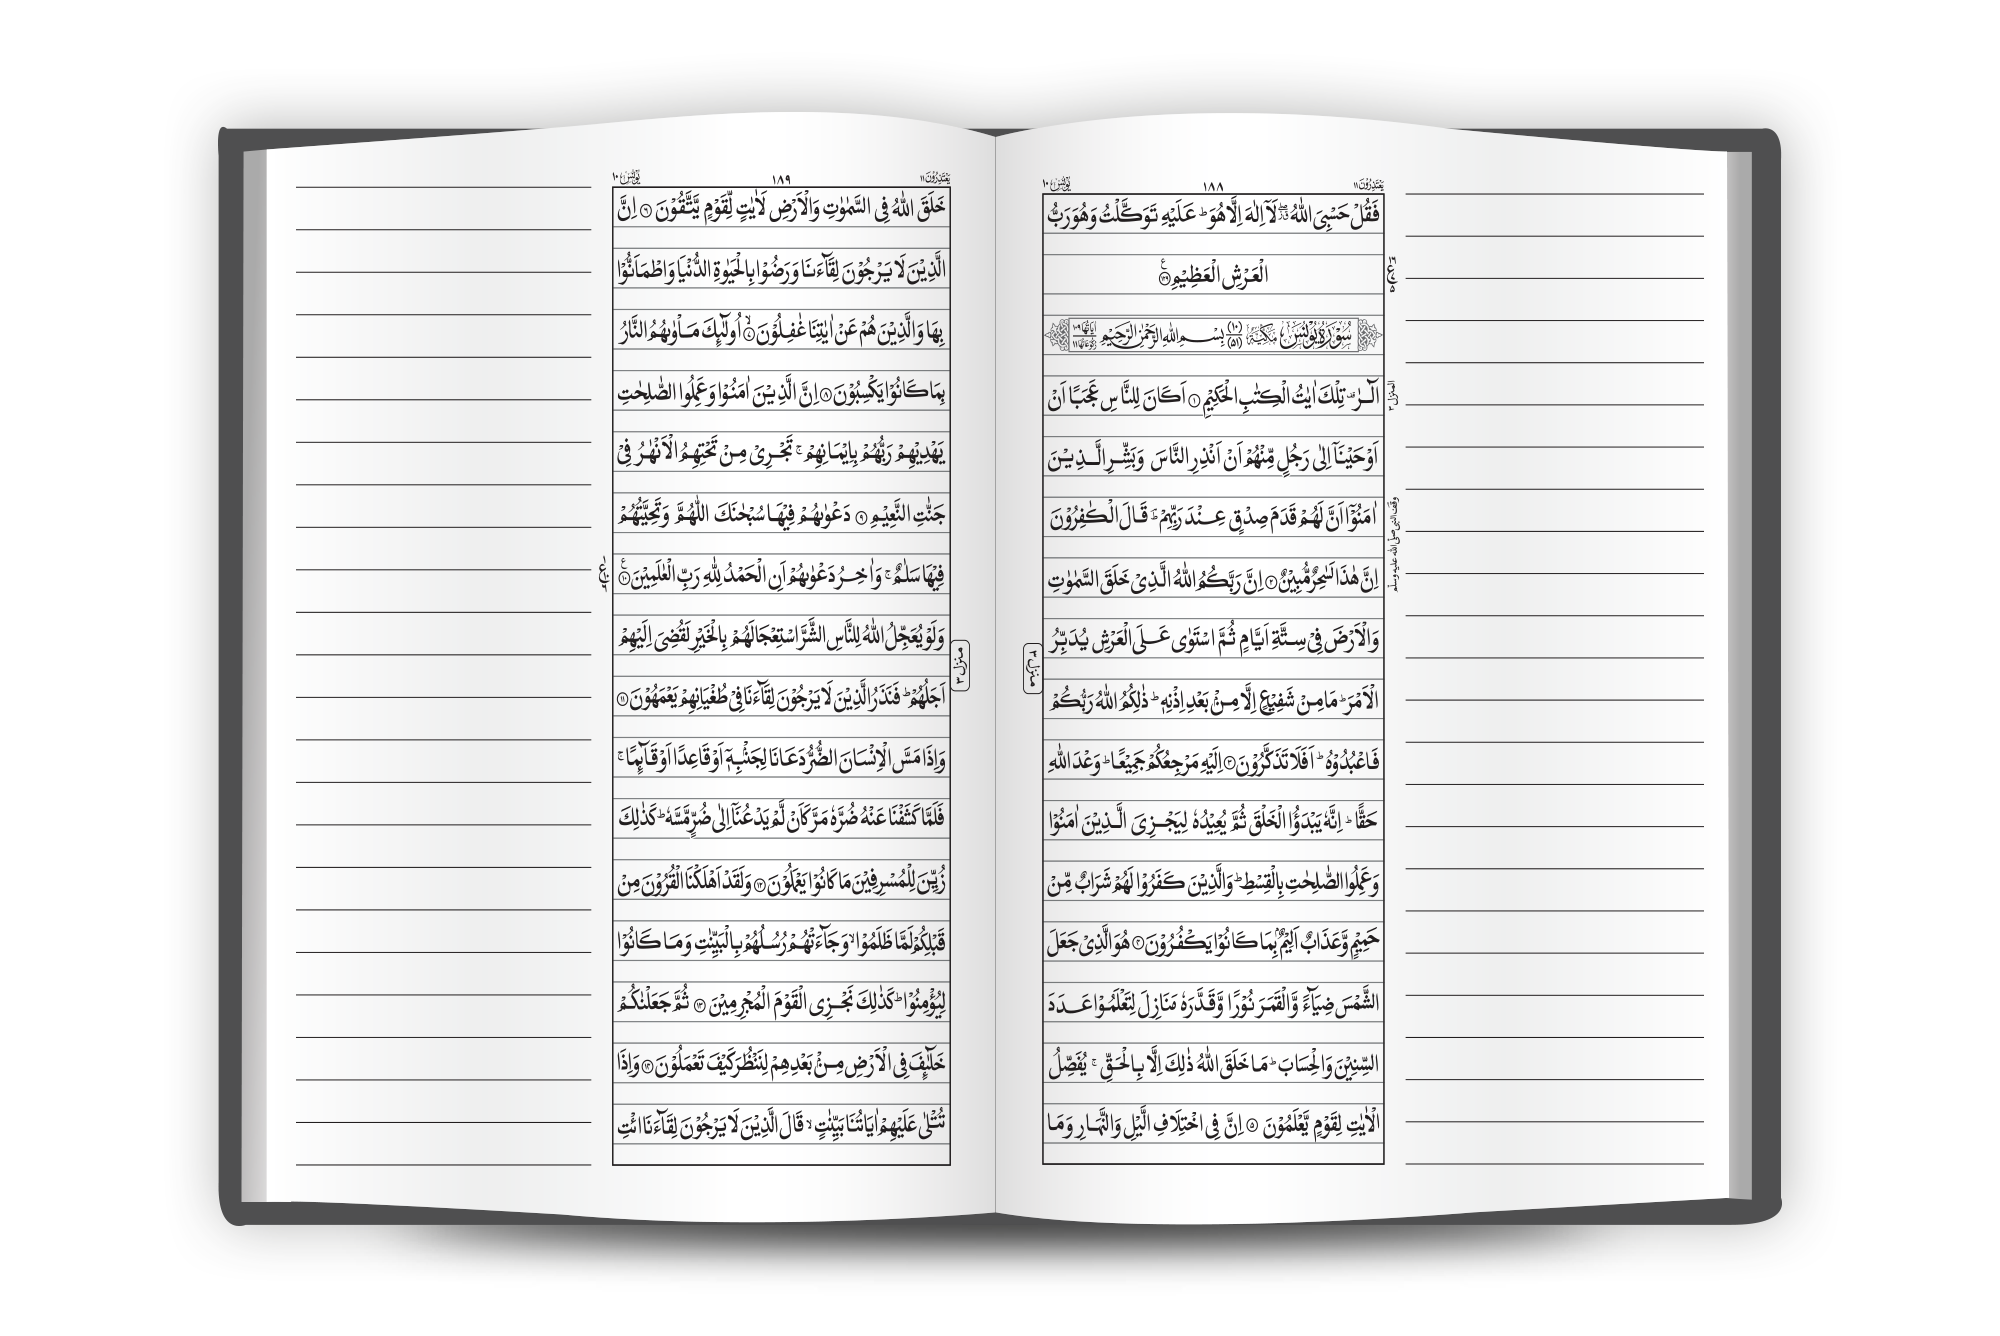 يَعْتَذِرُوْنَ ١١
١٨٨
يُوْنُس ١٠
فَقُلْ حَسْبِیَ اللّٰهُ ۖ لَاۤ اِلٰهَ اِلَّا هُوَ ؕ عَلَيْهِ تَوَكَّلْتُ وَهُوَ رَبُّ
الْعَرْشِ الْعَظِيْمِ ۠﴿۱۲۹﴾
سُوْرَةُ يُوْنُسَ مَكِّيَّةٌ (١٠) (٥١) بِسْمِ اللهِ الرَّحْمٰنِ الرَّحِيْمِ اٰيَاتُهَا ١٠٩ رُكُوْعَاتُهَا ١١
الٓـرٰ ۟ تِلْكَ اٰيٰتُ الْكِتٰبِ الْحَكِيْمِ ﴿۱﴾ اَكَانَ لِلنَّاسِ عَجَبًا اَنْ
اَوْحَيْنَاۤ اِلٰى رَجُلٍ مِّنْهُمْ اَنْ اَنْذِرِ النَّاسَ وَبَشِّرِ الَّذِيْنَ
اٰمَنُوْۤا اَنَّ لَهُمْ قَدَمَ صِدْقٍ عِنْدَ رَبِّهِمْ ؔؕ قَالَ الْكٰفِرُوْنَ
اِنَّ هٰذَا لَسٰحِرٌ مُّبِيْنٌ ﴿۲﴾ اِنَّ رَبَّكُمُ اللّٰهُ الَّذِىْ خَلَقَ السَّمٰوٰتِ
وَالْاَرْضَ فِىْ سِتَّةِ اَيَّامٍ ثُمَّ اسْتَوٰى عَلَى الْعَرْشِ يُدَبِّرُ
الْاَمْرَ ؕ مَا مِنْ شَفِيْعٍ اِلَّا مِنْۢ بَعْدِ اِذْنِهٖ ؕ ذٰلِكُمُ اللّٰهُ رَبُّكُمْ
فَاعْبُدُوْهُ ؕ اَفَلَا تَذَكَّرُوْنَ ﴿۳﴾ اِلَيْهِ مَرْجِعُكُمْ جَمِيْعًا ؕ وَعْدَ اللّٰهِ
حَقًّا ؕ اِنَّهٗ يَبْدَؤُا الْخَلْقَ ثُمَّ يُعِيْدُهٗ لِيَجْزِىَ الَّذِيْنَ اٰمَنُوْا
وَعَمِلُوا الصّٰلِحٰتِ بِالْقِسْطِ ؕ وَالَّذِيْنَ كَفَرُوْا لَهُمْ شَرَابٌ مِّنْ
حَمِيْمٍ وَّعَذَابٌ اَلِيْمٌۢ بِمَا كَانُوْا يَكْفُرُوْنَ ﴿۴﴾ هُوَ الَّذِىْ جَعَلَ
الشَّمْسَ ضِيَآءً وَّالْقَمَرَ نُوْرًا وَّقَدَّرَهٗ مَنَازِلَ لِتَعْلَمُوْا عَدَدَ
السِّنِيْنَ وَالْحِسَابَ ؕ مَا خَلَقَ اللّٰهُ ذٰلِكَ اِلَّا بِالْحَقِّ ۚ يُفَصِّلُ
الْاٰيٰتِ لِقَوْمٍ يَّعْلَمُوْنَ ﴿۵﴾ اِنَّ فِى اخْتِلَافِ الَّيْلِ وَالنَّهَارِ وَمَا
المنزل ٣
وقف النبی صلی الله علیه وسلم
منزل ٣
يَعْتَذِرُوْنَ ١١
١٨٩
يُوْنُس ١٠
خَلَقَ اللّٰهُ فِى السَّمٰوٰتِ وَالْاَرْضِ لَاٰيٰتٍ لِّقَوْمٍ يَّتَّقُوْنَ ﴿۶﴾ اِنَّ
الَّذِيْنَ لَا يَرْجُوْنَ لِقَآءَنَا وَرَضُوْا بِالْحَيٰوةِ الدُّنْيَا وَاطْمَاَنُّوْا
بِهَا وَالَّذِيْنَ هُمْ عَنْ اٰيٰتِنَا غٰفِلُوْنَ ۙ﴿۷﴾ اُولٰٓئِكَ مَاْوٰىهُمُ النَّارُ
بِمَا كَانُوْا يَكْسِبُوْنَ ﴿۸﴾ اِنَّ الَّذِيْنَ اٰمَنُوْا وَعَمِلُوا الصّٰلِحٰتِ
يَهْدِيْهِمْ رَبُّهُمْ بِاِيْمَانِهِمْ ۚ تَجْرِىْ مِنْ تَحْتِهِمُ الْاَنْهٰرُ فِىْ
جَنّٰتِ النَّعِيْمِ ﴿۹﴾ دَعْوٰىهُمْ فِيْهَا سُبْحٰنَكَ اللّٰهُمَّ وَتَحِيَّتُهُمْ
فِيْهَا سَلٰمٌ ۚ وَاٰخِرُ دَعْوٰىهُمْ اَنِ الْحَمْدُ لِلّٰهِ رَبِّ الْعٰلَمِيْنَ ﴿۱۰﴾
وَلَوْ يُعَجِّلُ اللّٰهُ لِلنَّاسِ الشَّرَّ اسْتِعْجَالَهُمْ بِالْخَيْرِ لَقُضِىَ اِلَيْهِمْ
اَجَلُهُمْ ؕ فَنَذَرُ الَّذِيْنَ لَا يَرْجُوْنَ لِقَآءَنَا فِىْ طُغْيَانِهِمْ يَعْمَهُوْنَ ﴿۱۱﴾
وَاِذَا مَسَّ الْاِنْسَانَ الضُّرُّ دَعَانَا لِجَنْۢبِهٖۤ اَوْ قَاعِدًا اَوْ قَآئِمًا ۚ
فَلَمَّا كَشَفْنَا عَنْهُ ضُرَّهٗ مَرَّ كَاَنْ لَّمْ يَدْعُنَاۤ اِلٰى ضُرٍّ مَّسَّهٗ ؕ كَذٰلِكَ
زُيِّنَ لِلْمُسْرِفِيْنَ مَا كَانُوْا يَعْمَلُوْنَ ﴿۱۲﴾ وَلَقَدْ اَهْلَكْنَا الْقُرُوْنَ مِنْ
قَبْلِكُمْ لَمَّا ظَلَمُوْا ۙ وَجَآءَتْهُمْ رُسُلُهُمْ بِالْبَيِّنٰتِ وَمَا كَانُوْا
لِيُؤْمِنُوْا ؕ كَذٰلِكَ نَجْزِى الْقَوْمَ الْمُجْرِمِيْنَ ﴿۱۳﴾ ثُمَّ جَعَلْنٰكُمْ
خَلٰٓئِفَ فِى الْاَرْضِ مِنْۢ بَعْدِهِمْ لِنَنْظُرَ كَيْفَ تَعْمَلُوْنَ ﴿۱۴﴾ وَاِذَا
تُتْلٰى عَلَيْهِمْ اٰيَاتُنَا بَيِّنٰتٍ ۙ قَالَ الَّذِيْنَ لَا يَرْجُوْنَ لِقَآءَنَا ائْتِ
منزل ٣